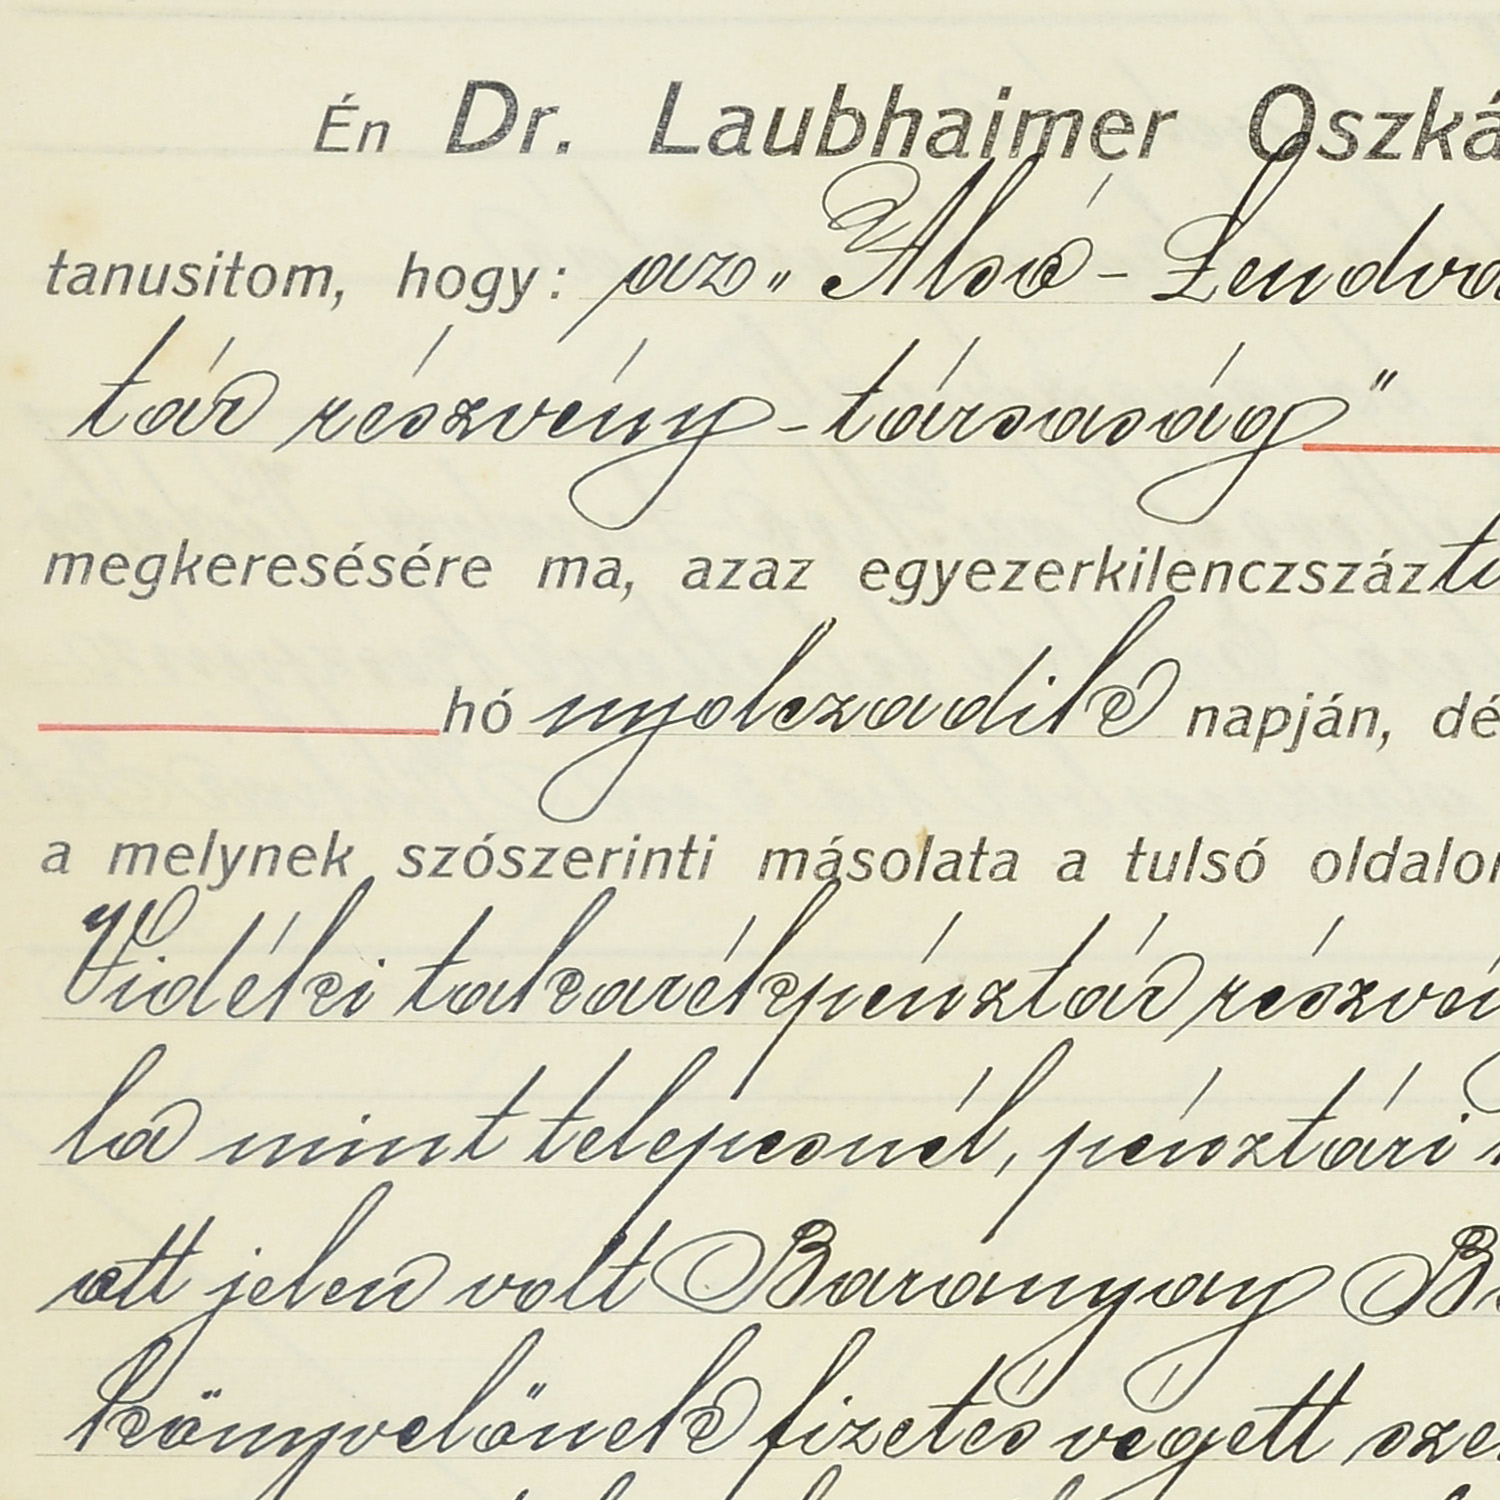 Én Dr. Laubhaimer Oszká
tanusitom, hogy: az „Alsó-Lendva
tár részvény-társaság"
megkeresésére ma, azaz egyezerkilenczszázti
hó nyolczadik napján, dé
a melynek szószerinti másolata a tulsó oldalon
Vidéki takarékpénztár részvén
la mint telepesnél, pénztári
ott jelen volt Baranyay B
könyvelőnek fizetés végett sze